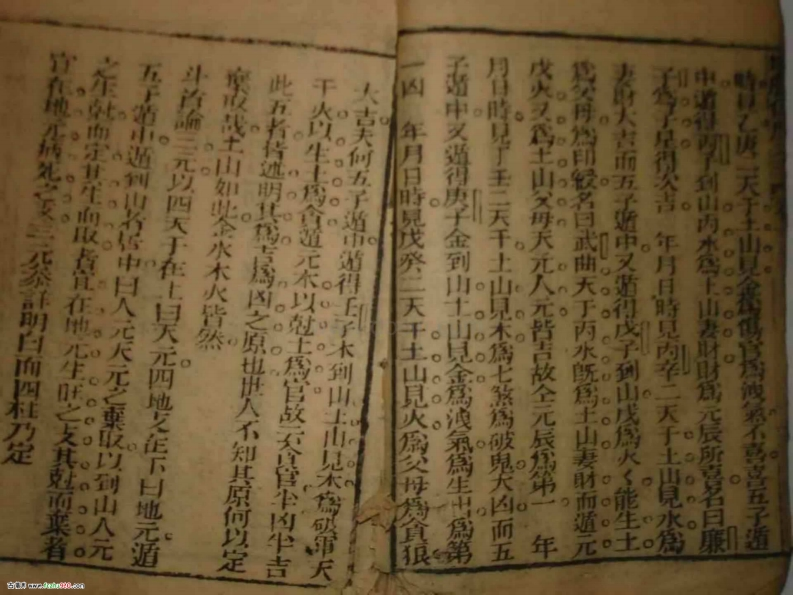 時見乙庚二天干土山見金爲傷官爲洩氣不爲喜五子遁
中遁得丙子到山丙水爲土山妻財財爲元辰所喜名曰廉
子爲子足得次吉 年月日時見丙辛二天干土山見水爲
妻財大吉而五子遁中又遁得戊子到山戊爲火〻能生土
爲父母爲印綬名曰武曲天干丙水旣爲土山妻財而遁元
戊火又爲土山父母天元人元皆吉故全元辰爲第一 年
月日時見丁壬二天干土山見木爲七煞爲破鬼大凶而五
子遁中又遁得庚子金到山土山見金爲洩氣爲生出爲第
一凶 年月日時見戊癸二天干土山見火爲父母爲貪狼
大吉夫何五子遁中遁得壬子木到山土山見木爲破軍天
干火以生土爲貪遁元木以尅土爲官故云貪官半凶半吉
此五者皆述明其爲吉爲凶之原也世人不知其原何以定
棄取哉土山如此金水木火皆然
斗首論三元以四天干在上曰天元四地支在下曰地元遁
五子遁中遁到山者居中曰人元天元之棄取以到山人元
之生尅而定其生而取者宜在地元生旺之支其尅而棄者
宜在地元病死之支三元叅詳明白而四柱乃定